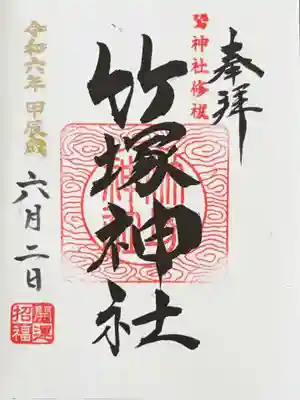 奉拝
鷲神社修復
竹塚神社
令和六年 甲辰歳
六月二日
開運
招福